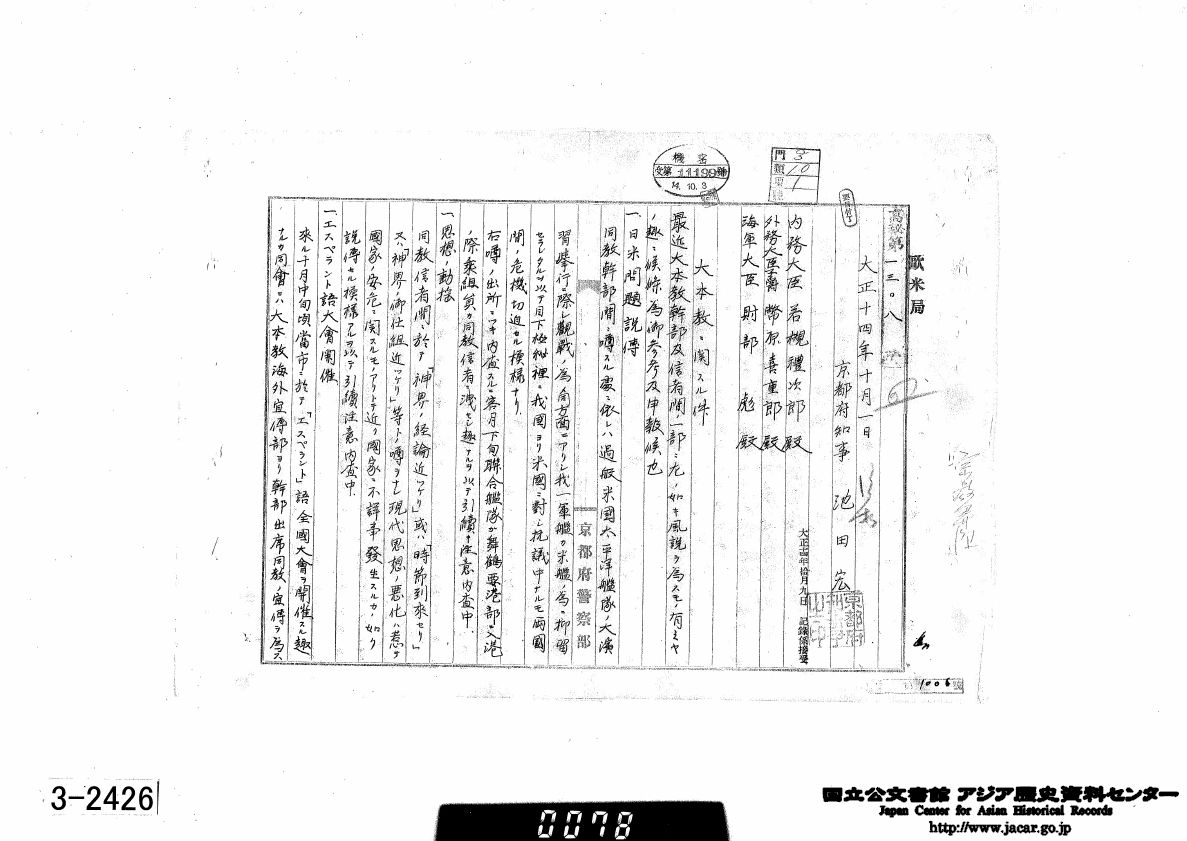 歐米局
高秘第一三〇八號
大正十四年十月一日
京都府知事 池田宏
内務大臣 若槻禮次郎 殿
外務大臣男爵 幣原喜重郎 殿
海軍大臣 財部 彪 殿
大本教ニ関スル件
最近大本教幹部及信者間ノ一部ニ左ノ如キ風説ヲ為スモノ有之ヤ
ノ趣ニ候條為御参考及申報候也
一、日米問題説傳
同教幹部間ニ噂スル處ニ依レハ過般米国太平洋艦隊ノ大演
習挙行ノ際シ觀戰ノ為メ南方面ニアリシ我一軍艦カ米艦ノ為メ抑留
セラレタルヲ以テ目下極秘裡ニ我國ヨリ米國ニ對シ抗議中ナルモ両國
間ノ危機切迫セル模様ナリ
右噂ノ出所ニツキ内査スルニ客月下旬聯合艦隊カ舞鶴要港部ニ入港
ノ際乗組員カ同教信者ニ洩セシ趣ナルヲ以テ引續キ注意内査中
一、思想ノ動揺
同教信者間ニ於テ「神界ノ経論近ツケリ」或ハ「時節到來セリ」
又ハ「神界ノ御仕組近ツケリ」等トノ噂ヲナシ現代思想ノ悪化ハ惹テ
國家ノ安危ニ関スルモノアリトテ近ク國家ニ不祥事發生スルカノ如ク
説傳セル模様アルヲ以テ引續注意内査中
一、エスペラント語大會開催
來ル十月中旬頃當市ニ於テ「エスペラント」語全國大會ヲ開催スル趣
ナルカ同會ニハ大本教海外宣傳部ヨリ幹部出席同教ノ宣傳ヲ為ス
京都府警察部
機密
受第11199號
14.10.3
門 3
類 10
項 1
大正十四年拾月九日 記録係接受
1006
3-2426
0078
国立公文書館 アジア歴史資料センター
Japan Center for Asian Historical Records
http://www.jacar.go.jp